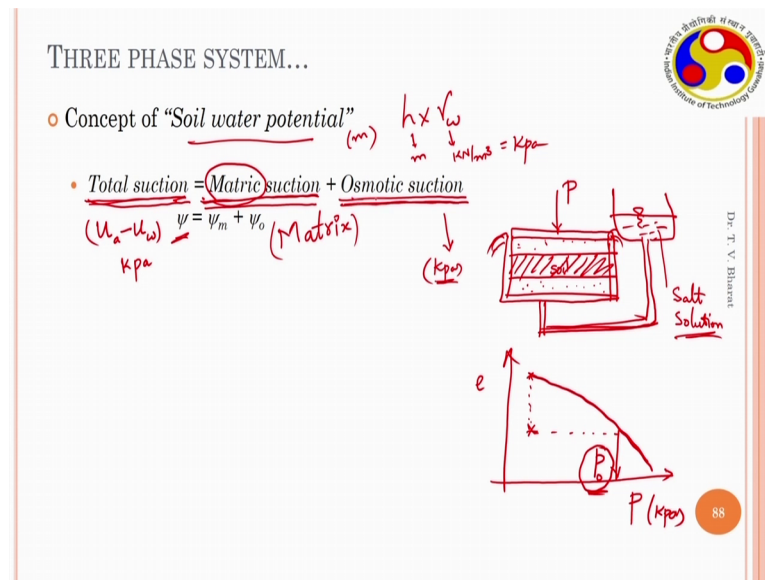 THREE PHASE SYSTEM...
भारतीय प्रौद्योगिकी संस्थान गुवाहाटी
Indian Institute of Technology Guwahati
Concept of “Soil water potential”
(m)
h x γw
m
KN/m³ = kpa
Total suction = Matric suction + Osmotic suction
ψ = ψm + ψo
(Ua-Uw)
kpa
(Matrix)
(kpa)
P
soil
Salt
Solution
e
Po
P (kpa)
Dr. T. V. Bharat
88